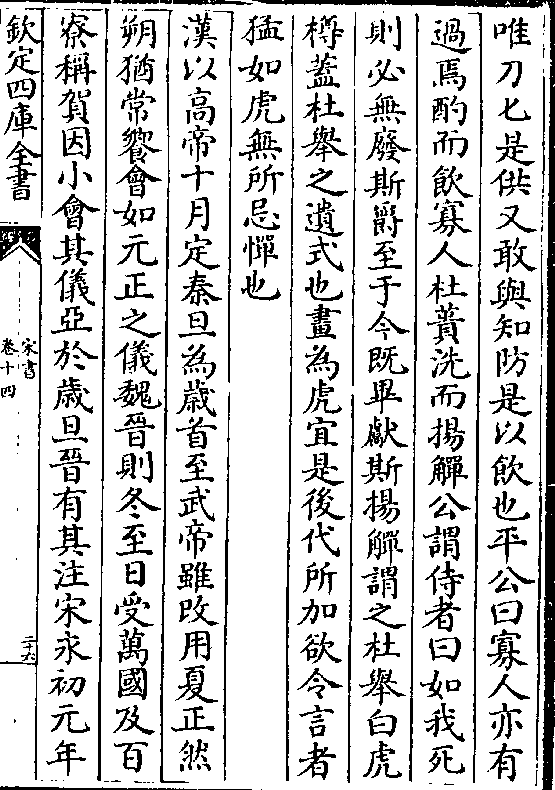 唯刀匕是供又敢與知防是以飲也平公曰寡人亦有
過焉酌而飲寡人杜蕢洗而揚觶公謂侍者曰如我死
則必無廢斯爵至于今既畢獻斯揚觶謂之杜舉白虎
樽蓋杜舉之遺式也畫為虎宜是後代所加欲令言者
猛如虎無所忌憚也
漢以高帝十月定秦旦為歲首至武帝雖改用夏正然
朔猶常饗會如元正之儀魏晉則冬至日受萬國及百
寮稱賀因小會其儀亞於歲旦晉有其注宋永初元年
欽定四庫全書
宋書
卷十四
二十六